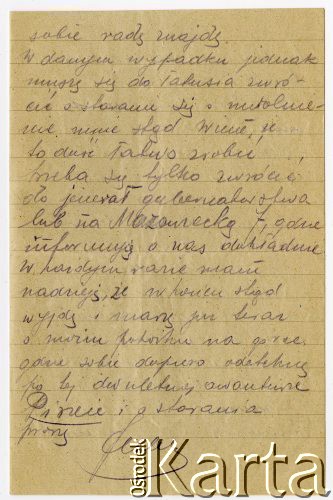 sobie radę znajdę
W danym wypadku jednak
muszę się do Tatusia zwró-
cić o staranie się o uwolnie-
nie mnie stąd. Wiem, że
to dość łatwo zrobić
trzeba się tylko zwrócić
do generał gubernatorstwa
lub na Mazowiecką 7, gdzie
informują o nas dokładnie
W każdym razie mam
nadzieję, że w końcu stąd
wyjdę i marzę już teraz
o moim pobycie na
gdzie sobie dopiero odetchnę
po tej dwuletniej awanturze
Piszcie i o starania
proszę
Ośrodek Karta